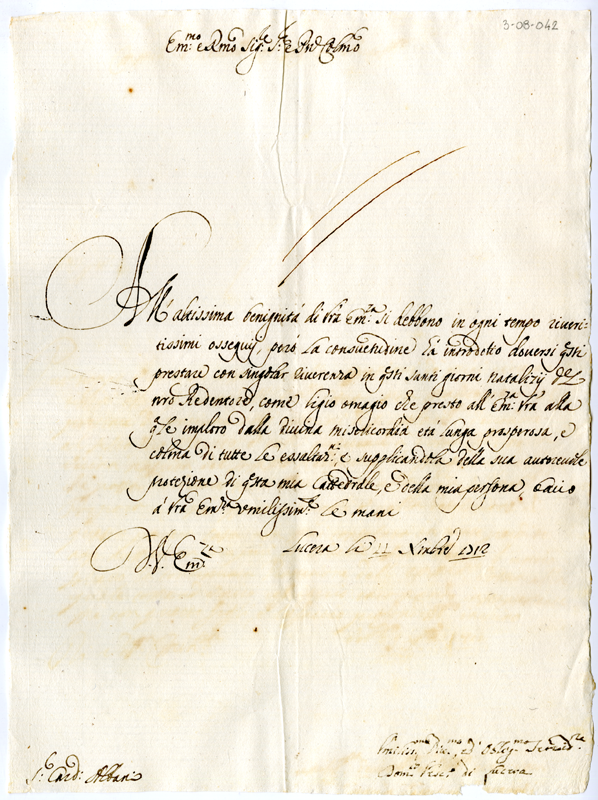 3-08-042
Em:mo e Rmo Sig.re S.re e Pne Colmo
All' altissima benignità di Vra Em:za si debbono in ogni tempo riveri-
tissimi ossequij, però la consuetudine hà introdotto doversi q̃sti
prestare con singolar riverenza in q̃sti santi giorni natalizij del
nrõ Redentore, come ligio omagio che presto all' Em:za Vrã alla
q̃le imploro dalla divina misericordia età lunga prosperosa, e
colma di tutte le essaltaz:ni e supplicandola della sua autorevole
protezione di q̃sta mia Cattedrale, e della mia persona, bacio
à Vrã Em:za umilissim.te le mani
D. V. Em:za Lucera le 11 Xmbre 1712
S.r Card: Albani
Umiliss.mo Dev.mo ed Oblig.mo Servid.re
Dom.co Vesc.o di Lucera